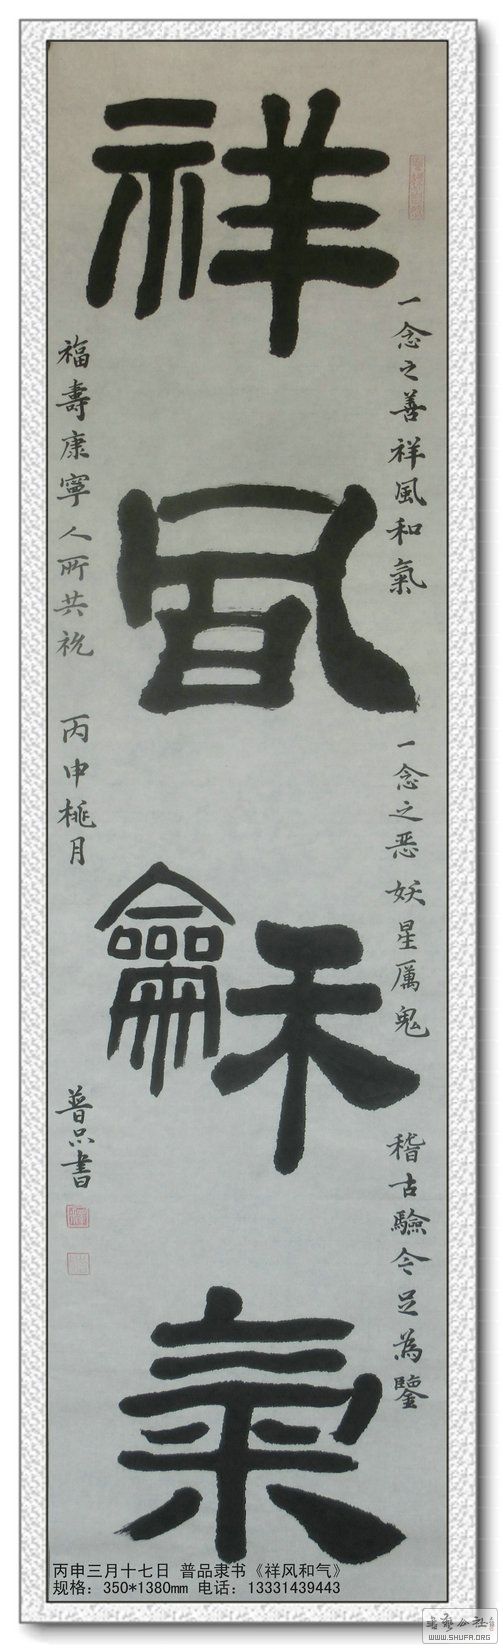 祥風龢氣
一念之善祥風和氣 一念之恶妖星厲鬼 稽古驗今足為鑒
福壽康寧人所共祝 丙申桃月
普品書
丙申三月十七日 普品隶书《祥风和气》
规格：350*1380mm 电话：13331439443
书艺公社
WWW.SHUFA.ORG